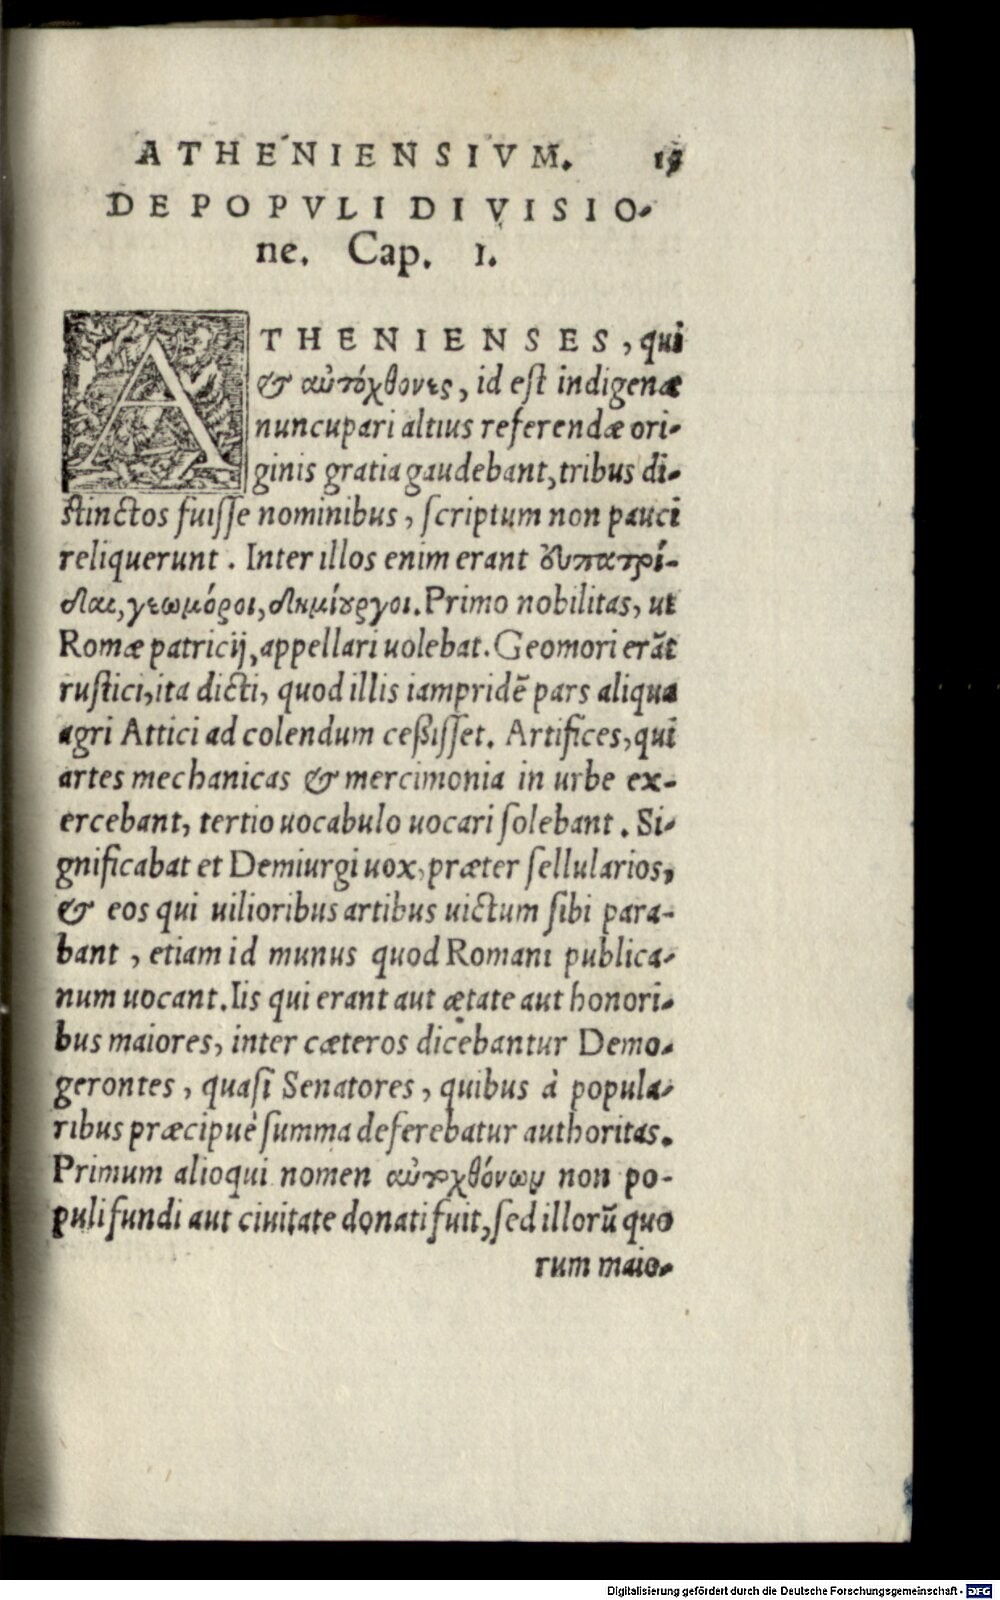 ATHENIENSIVM. 19
DE POPVLI DIVISIO-
ne. Cap. 1.
ATHENIENSES, qui
& αὐτόχθονες, id est indigenæ
nuncupari altius referendæ ori-
ginis gratia gaudebant, tribus di-
stinctos fuisse nominibus, scriptum non pauci
reliquerunt. Inter illos enim erant ἐυπατρί-
δαι, γεωμόροι, δημίουργοι. Primo nobilitas, ut
Romæ patricij, appellari uolebat. Geomori erāt
rustici, ita dicti, quod illis iampridē pars aliqua
agri Attici ad colendum cessisset. Artifices, qui
artes mechanicas & mercimonia in urbe ex-
ercebant, tertio uocabulo uocari solebant. Si-
gnificabat et Demiurgi uox, præter sellularios,
& eos qui uilioribus artibus uictum sibi para-
bant, etiam id munus quod Romani publica-
num uocant. Iis qui erant aut ætate aut honori-
bus maiores, inter cæteros dicebantur Demo-
gerontes, quasi Senatores, quibus à popula-
ribus præcipuè summa deferebatur authoritas.
Primum alioqui nomen αὐτοχθόνων non po-
puli fundi aut ciuitate donati fuit, sed illorū quo
rum maio-
Digitalisierung gefördert durch die Deutsche Forschungsgemeinschaft - DFG